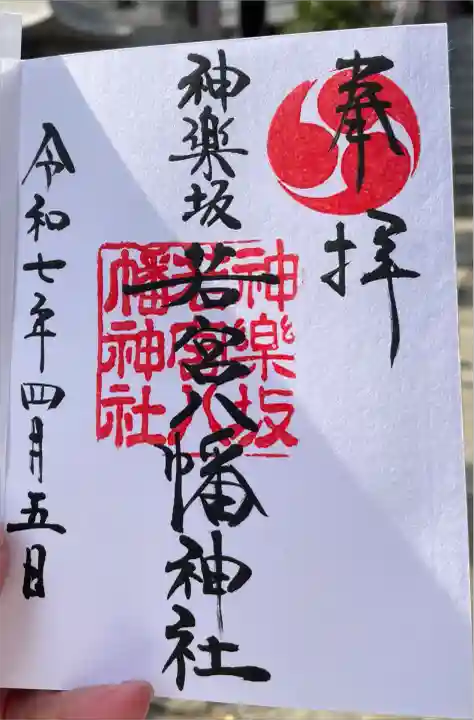 奉拝
神楽坂 若宮八幡神社
神楽坂
若宮八
幡神社
令和七年四月五日